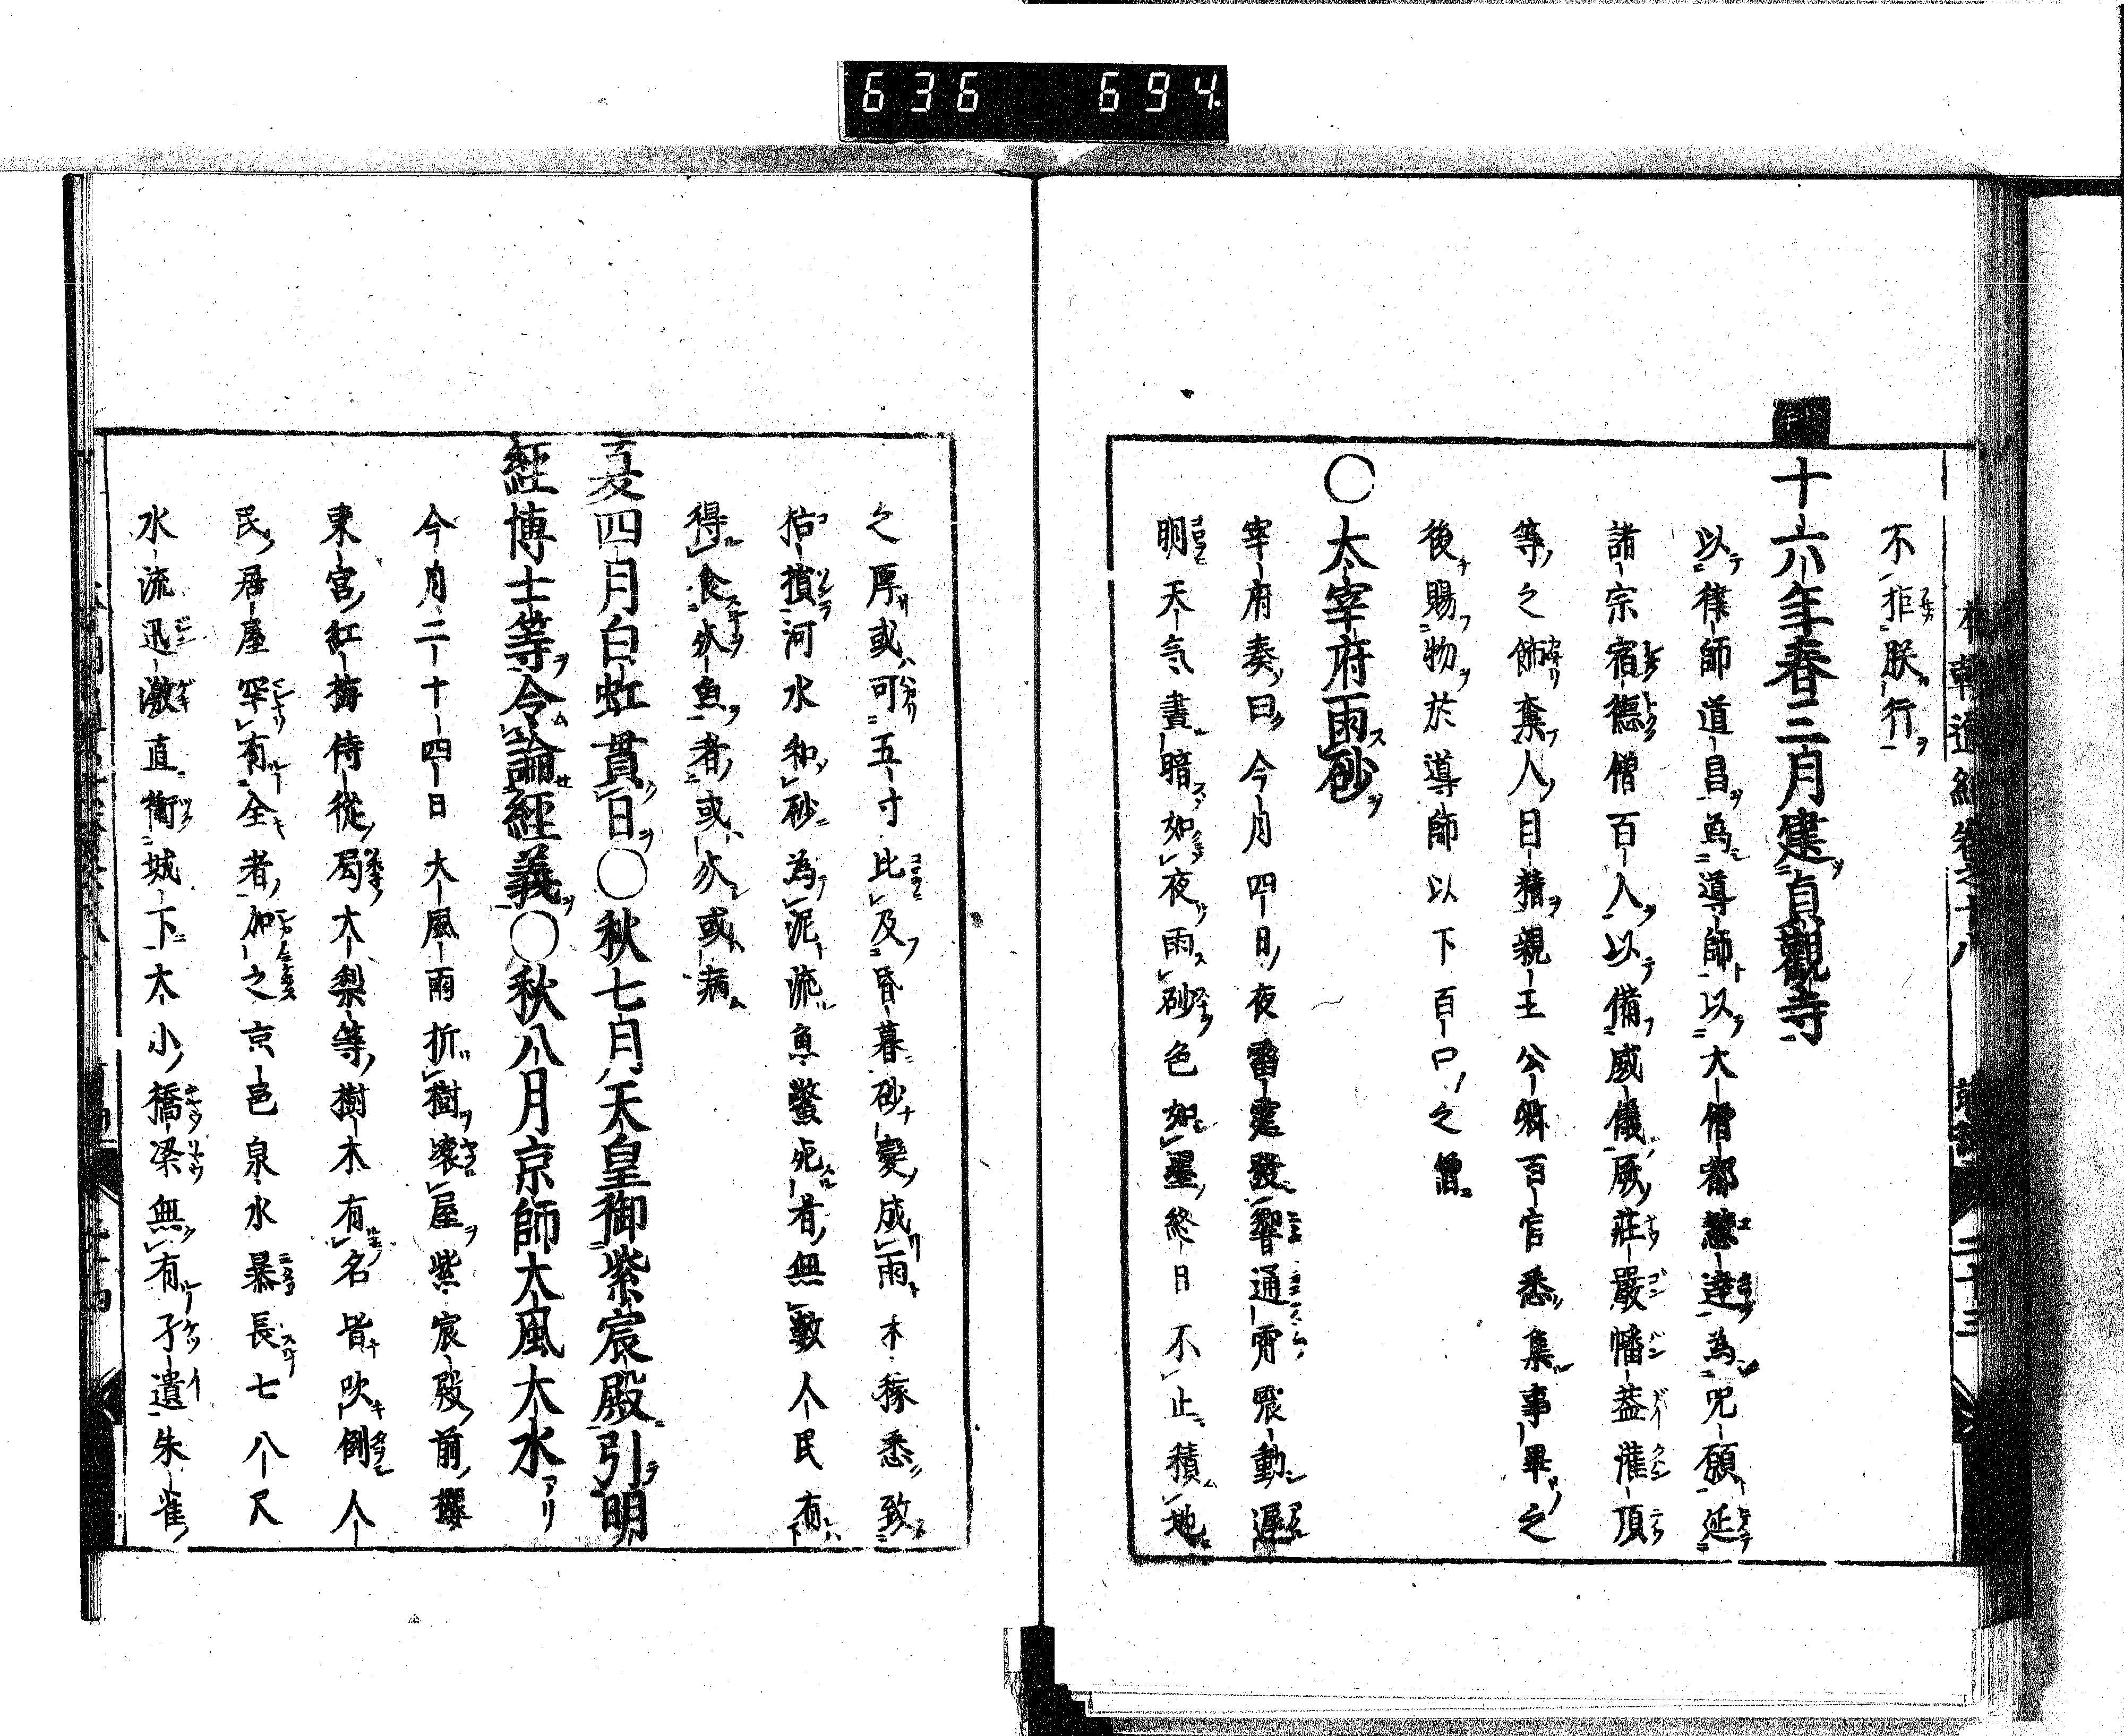 636 694
不拒朕行
十六年春三月建貞觀寺
以律師道昌爲導師以大僧都慧達為咒願延
諸宗宿德僧百人以備威儀厥莊嚴幡蓋灌頂
等之飾奪人目精親王公卿百官悉集事畢之
後賜物於導師以下百口之僧
○太宰府雨砂
宰府奏曰今月四日夜雷霆發響通霄震動遲
明天气晝暗如夜雨砂色如墨終日不止積地
之厚或可五寸比及昏暮砂變成雨禾稼悉致
枯損河水和砂為泥流魚鼈死者無數人民有
得食死魚者或死或病
夏四月白虹貫日○秋七月天皇御紫宸殿引明
經博士等令論經義○秋八月京師大風大水
今月二十四日大風雨折樹壞屋紫宸殿前櫻
東宮紅梅侍從局大梨等樹木有名皆吹倒人
民居屋罕有全者加之京邑泉水暴長七八尺
水流迅激直衝城下大小橋梁無有孑遺朱雀